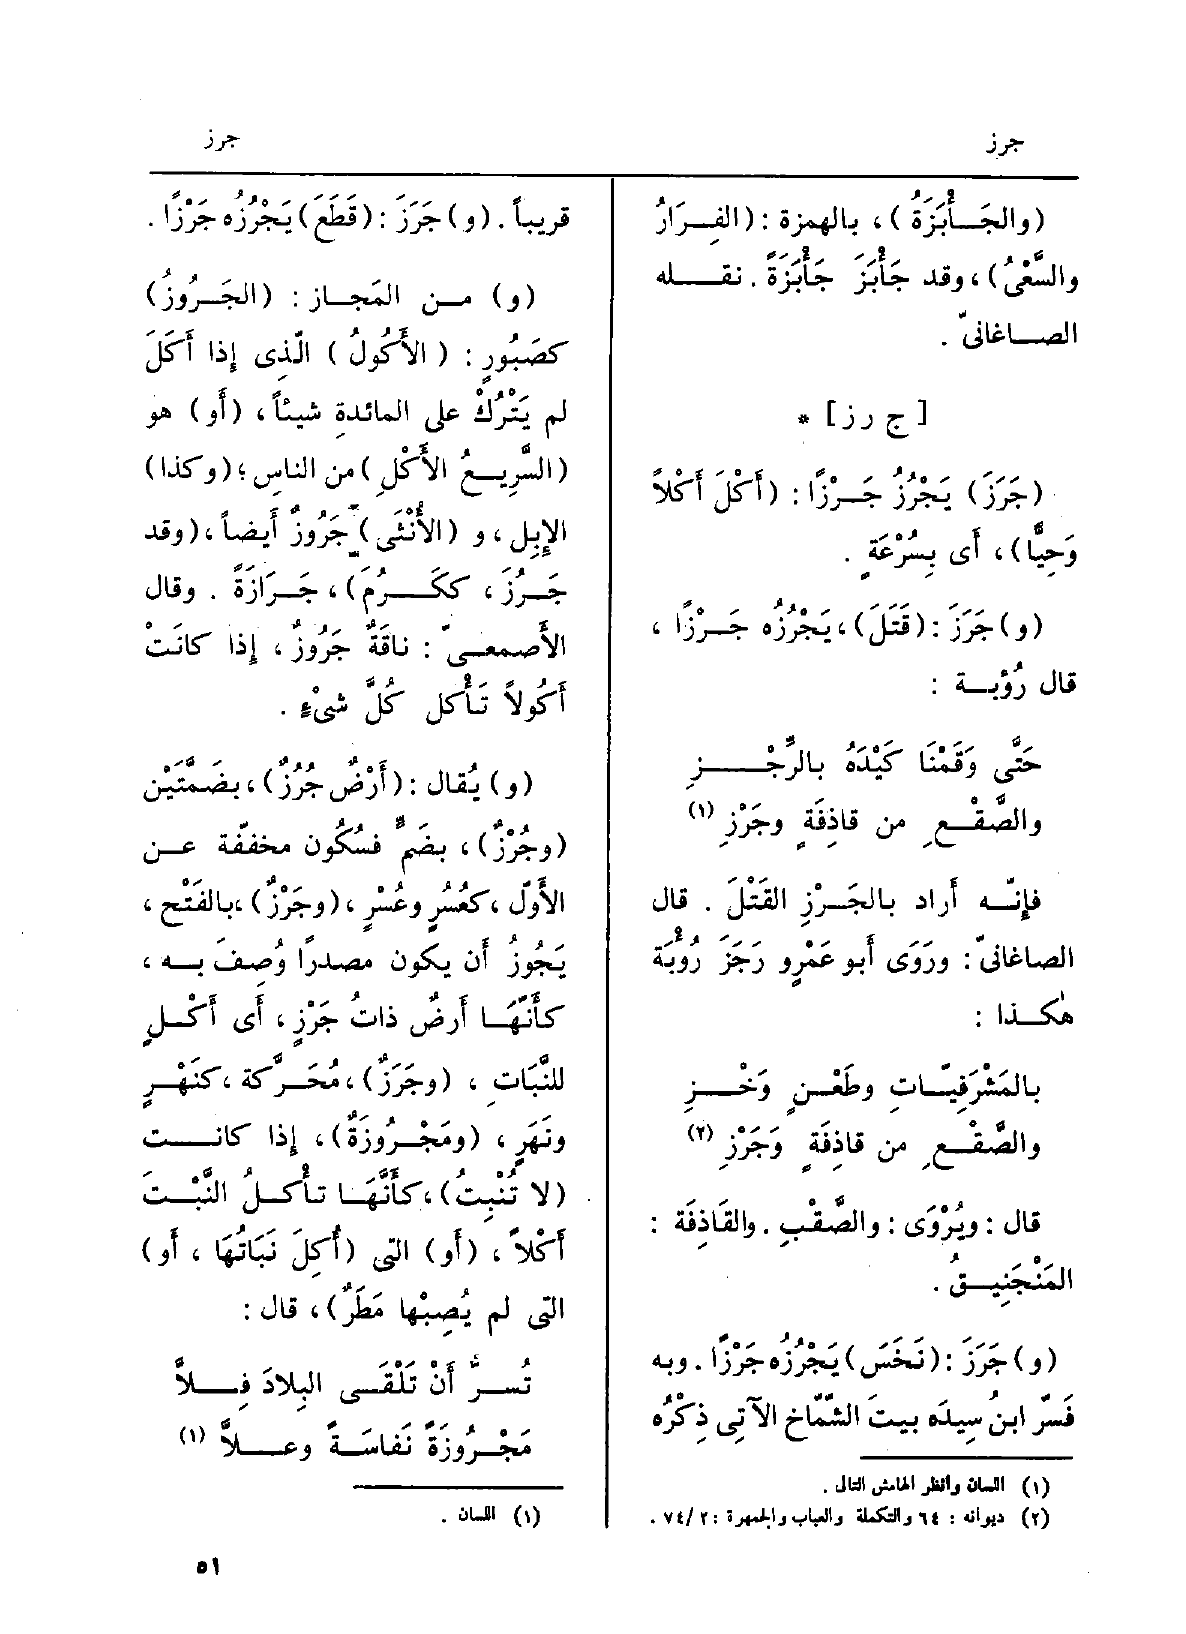 جرز
جرز
(والجَأْبَزَةُ)، بالهمزة : (الفِرَارُ
والسَّعْىُ)، وقد جَأْبَزَ جَأْبَزَةً . نقله
الصاغانىّ .
[ ج ر ز ] *
(جَرَزَ) يَجْرُزُ جَرْزًا : (أَكَلَ أَكْلاً
وَحِيًّا)، أى بِسُرْعَةٍ .
(و) جَرَزَ : (قَتَلَ)، يَجْرُزُه جَرْزًا ،
قال رُؤْبة :
حَتَّى وَقَمْنَا كَيْدَهُ بالرِّجْزِ
والصَّقْعِ من قاذِفَةٍ وجَرْزِ (١)
فإِنّه أراد بالجَرْزِ القَتْلَ . قال
الصاغانىّ : ورَوَى أبو عَمْرٍو رَجَزَ رُؤْبَةَ
هٰكذا :
بالمَشْرَفِيّاتِ وطَعْنٍ وَخْزِ
والصَّقْعِ من قاذِفَةٍ وَجَرْزِ (٢)
قال : ويُرْوَى : والصَّقْبِ . والقَاذِفَة :
المَنْجَنِيقُ .
(و) جَرَزَ : (نَخَسَ) يَجْرُزه جَرْزًا . وبه
فَسّر ابنُ سِيدَه بيتَ الشَّمّاخِ الآتِى ذِكْرُه
(١) اللسان وانظر الهامش التالى .
(٢) ديوانه : ٦٤ والتكملة والعباب والجمهرة : ٢/ ٧٤ .
قريباً . (و) جَرَزَ : (قَطَعَ) يَجْرُزُه جَرْزًا .
(و) من المَجاز : (الجَرُوزُ)
كصَبُورٍ : (الأَكُولُ) الّذِى إذا أَكَلَ
لم يَتْرُكْ على المائدةِ شيئاً، (أَو) هو
(السَّرِيعُ الأَكْلِ) من الناسِ؛ (وكذا)
الإبِل، و (الأُنْثَى) جَرُوزٌ أَيضاً، (وقد
جَرُزَ ، ككَرُمَ)، جَرَازَةً . وقال
الأَصمعىّ : ناقَةٌ جَرُوزٌ ، إذا كانَتْ
أَكُولاً تَأْكل كُلَّ شىْءٍ .
(و) يُقال : (أَرْضٌ جُرُزٌ)، بضَمَّتَيْن
(وجُرْزٌ)، بضَمٍّ فسُكون مخففّة عن
الأَوّل ، كعُسُرٍ وعُسْرٍ ، (وجَرْزٌ)، بالفَتْح ،
يَجُوزُ أن يكون مصدرًا وُصِفَ به ،
كأَنّها أَرضٌ ذاتُ جَرْزٍ ، أى أَكْلٍ
للنَّبَاتِ ، (وجَرَزٌ)، مُحَرَّكة ، كنَهْرٍ
ونَهَرٍ ، (ومَجْرُوزَةٌ)، إذا كانت
(لا تُنْبِتُ)، كأَنَّهَا تأْكلُ النَّبْتَ
أَكْلاً ، (أو) التى (أُكِلَ نَبَاتُهَا ، أو)
التى لم يُصِبْها مَطَرٌ)، قال :
تُسرُّ أَنْ تَلْقَى البِلادَ فِلاَّ
مَجْرُوزَةً نَفاسَةً وعلاَّ (١)
(١) اللسان .
٥١